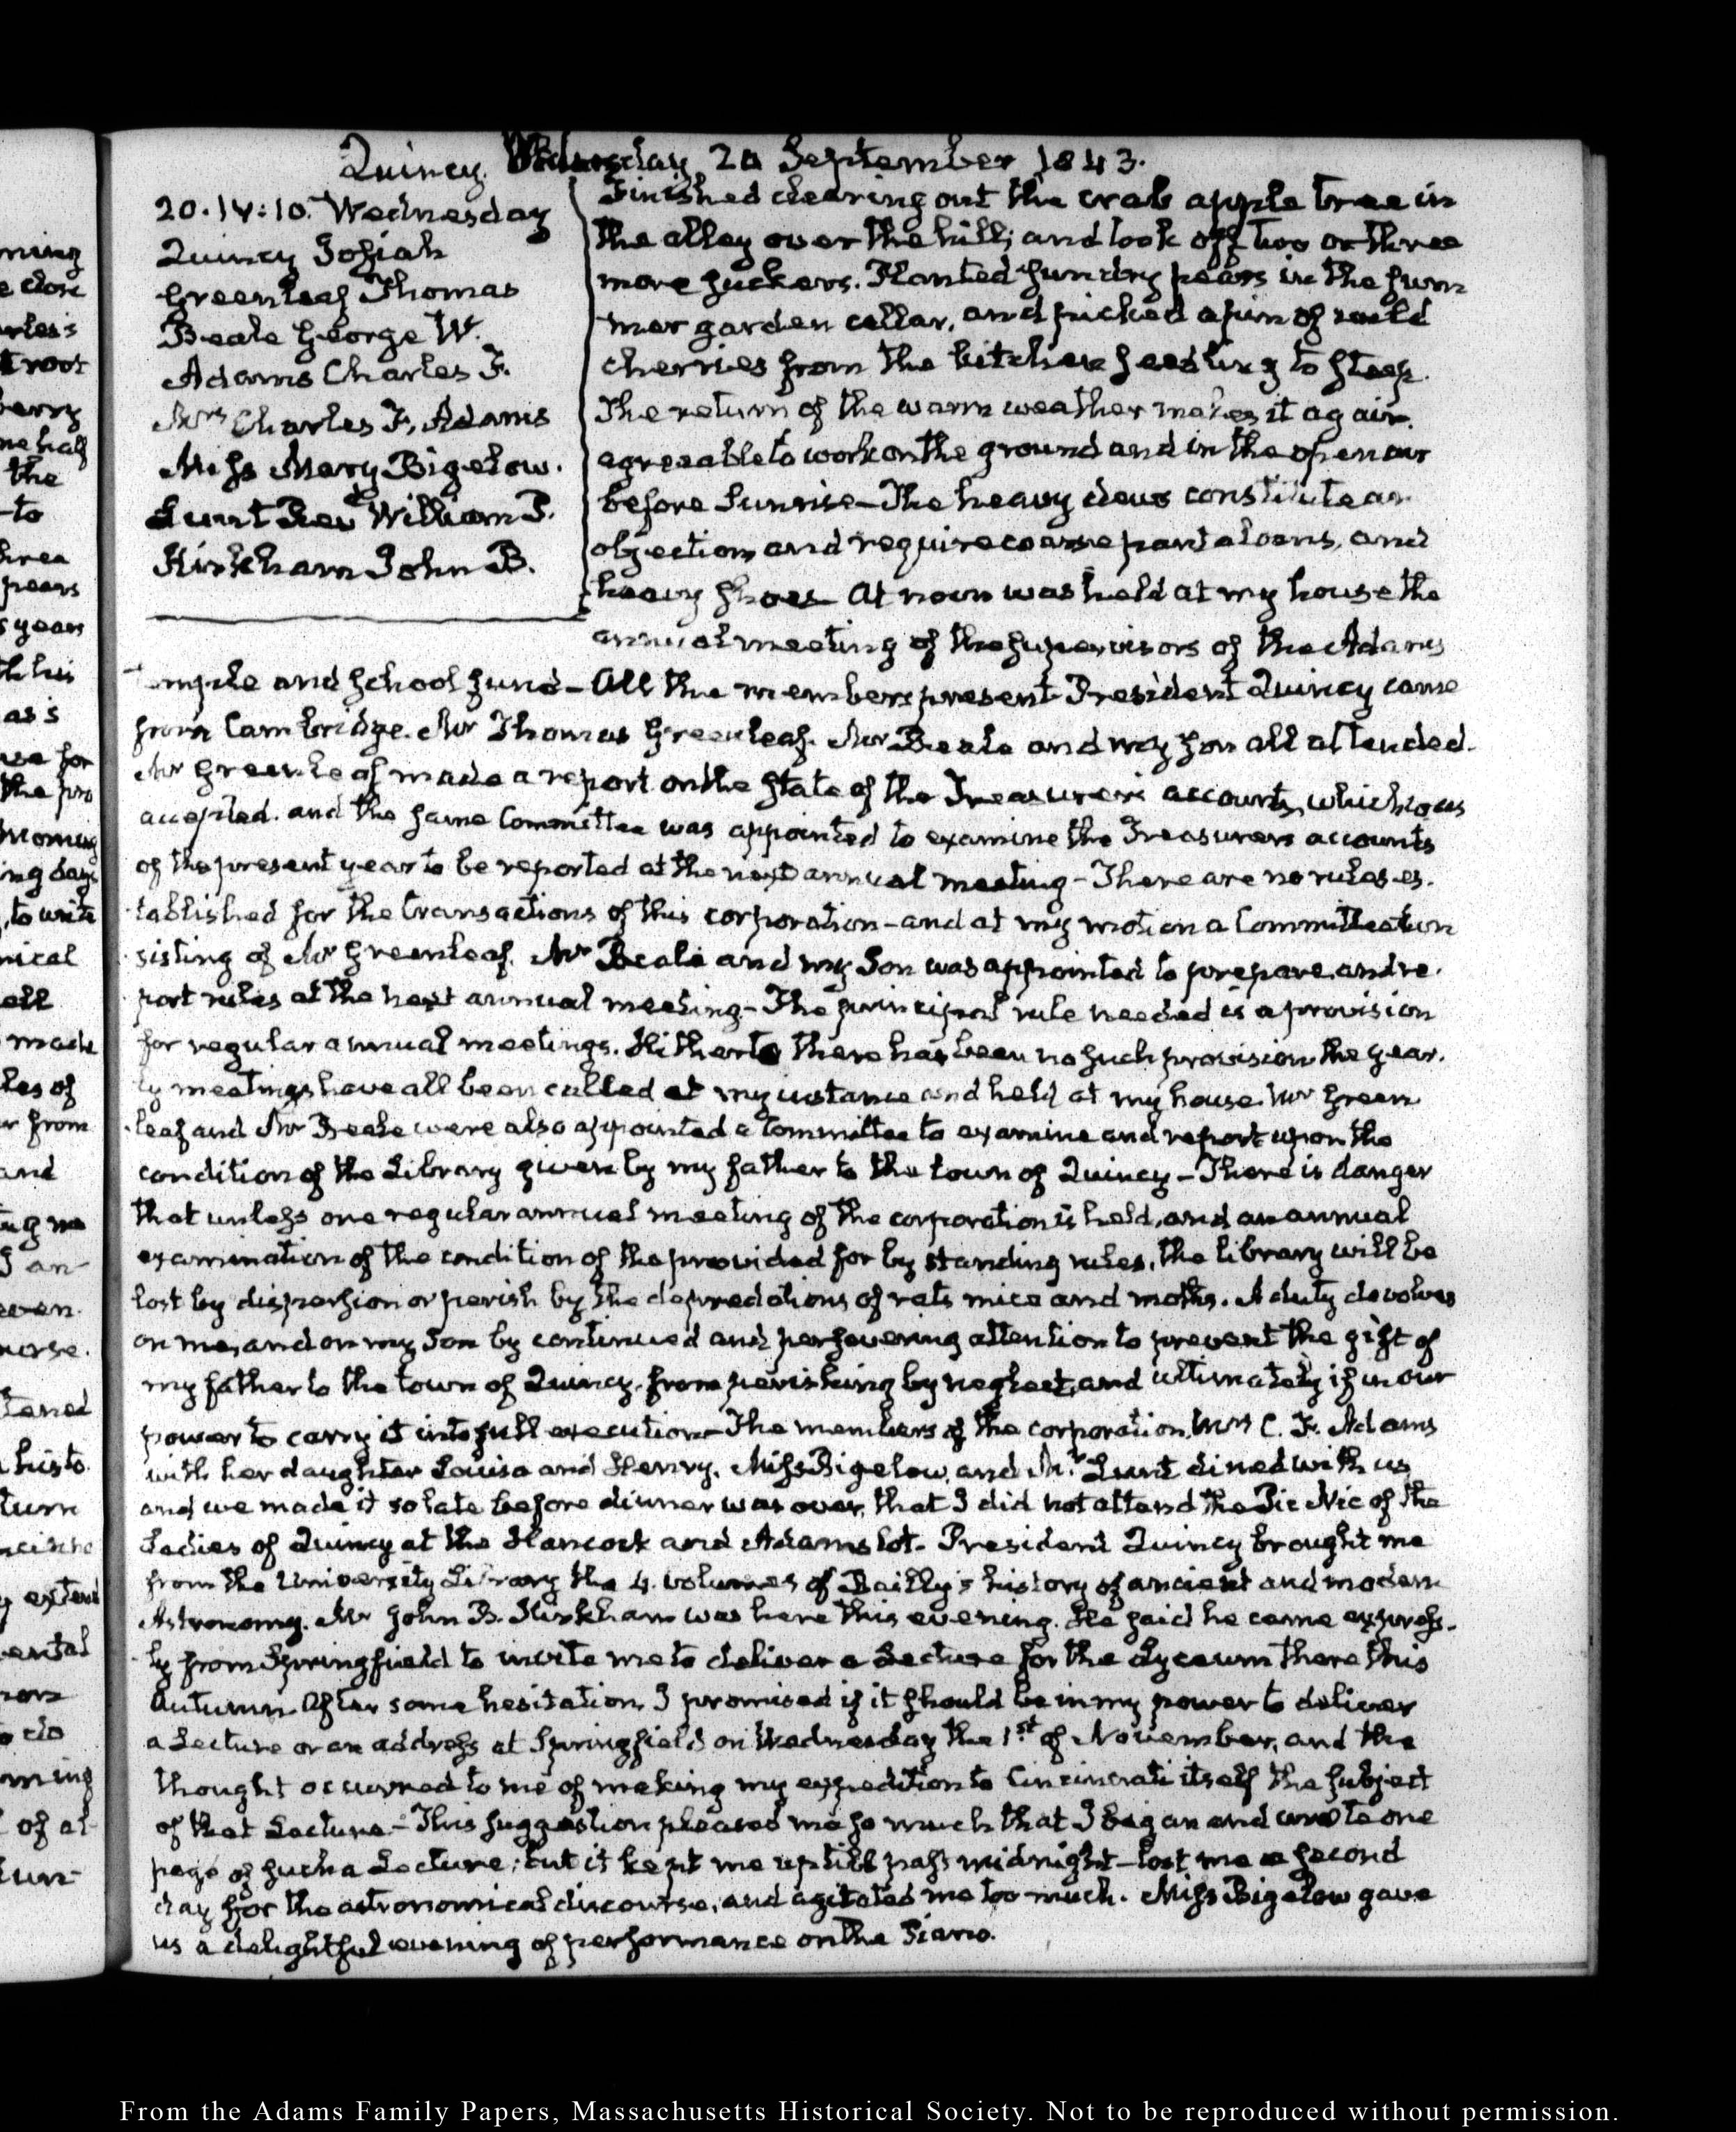 Quincy. Wednesday 20 September 1843.
20. IV:10. Wednesday
Quincy Josiah
Greenleaf Thomas
Beale George W.
Adams Charles F.
Mrs Charles F. Adams
Miss Mary Bigelow.
Lunt Rev William P.
Kirkham John B.
Finished clearing out the crab apple tree in
the alley over the hill; and took off two or three
more suckers. Planted sundry pears in the sum
mer garden cellar, and picked a of wild
cherries from the kitchen seedling to steep.
The return of the warm weather makes it again
agreeable to work on the ground and in the open air
before Sunrise—The heavy dews constitute an
objection, and require coarse pantaloons, and
heavy shoes— At noon was held at my house the
annual meeting of the supervisors of the Adams
Temple and school fund—All the members present. President Quincy came
from Cambridge. Mr Thomas Greenleaf. Mr Beale and my son all attended.
Mr Greenleaf made a report on the state of the Treasurer's accounts, which was
accepted. and the same Committee was appointed to examine the Treasurers accounts
of the present year to be reported at the next annual meeting—There are no rules es-
tablished for the transactions of this corporation—and at my motion a Committee con
sisting of Mr Greenleaf. Mr Beale and my Son was appointed to prepare, and re-
port rules at the next annual meeting—The principal rule needed is a provision
for regular annual meetings. Hitherto there has been no such provision the year-
ly meetings have all been called at my instance and held at my house. Mr Green
leaf and Mr Beale were also appointed a Committee to examine and report upon the
condition of the Library given by my father to the town of Quincy—There is danger
that unless one regular annual meeting of the corporation is held, and an annual
examination of the condition of the provided for by standing rules, the library will be
lost by dispersion or perish by the depredations of rats mice and moths. A duty devolves
on me, and on my Son by continued and persevering attention to prevent the gift of
my father to the town of Quincy, from perishing by neglect, and ultimately if in our
power to carry it into full execution—The members of the corporation, Mrs C. F. Adams
with her daughter Louisa and Henry, Miss Bigelow, and Mr Lunt dined with us
and we made it so late before dinner was over, that I did not attend the Pic Nic of the
Ladies of Quincy at the Hancock and Adams lot. President Quincy brought me
from the University Library the 4. volumes of Bailly's history of ancient and modern
Astronomy. Mr John B. Kirkham was here this evening. He said he came express-
ly from Springfield to invite me to deliver a Lecture for the Lyceum there this
Autumn. After some hesitation, I promised if it should be in my power to deliver
a Lecture or an address at Springfield on Wednesday the 1st of November, and the
thought occurred to me of making my expedition to Cincinnati itself the subject
of that Lecture—This suggestion pleased me so much that I began and wrote one
page of such a Lecture; but it kept me up till past midnight—lost me a second
day for the astronomical discourse, and agitated me too much. Miss Bigelow gave
us a delightful evening of performance on the Piano.
From the Adams Family Papers, Massachusetts Historical Society. Not to be reproduced without permission.